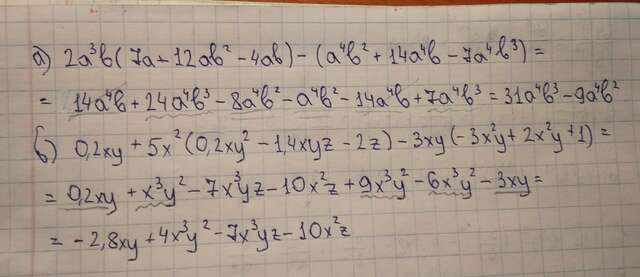 а) 2a³b(7a+12ab²-4ab)-(a⁴b²+14a⁴b-7a⁴b³)=
= 14a⁴b+24a⁴b³-8a⁴b²-a⁴b²-14a⁴b+7a⁴b³=31a⁴b³-9a⁴b²
б) 0,2xy+5x²(0,2xy²-1,4xyz-2z)-3xy(-3x²y+2x²y+1)=
= 0,2xy+x³y²-7x³yz-10x²z+9x³y²-6x³y²-3xy=
= -2,8xy+4x³y²-7x³yz-10x²z